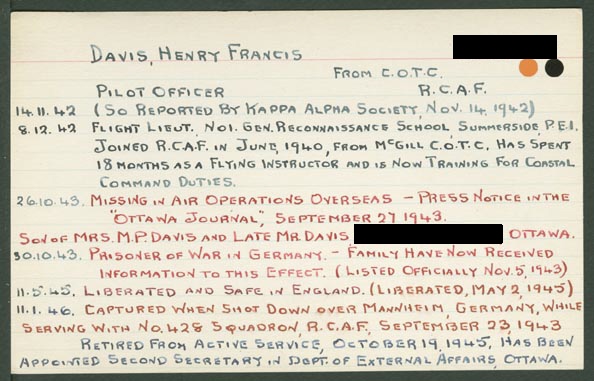 DAVIS, HENRY FRANCIS
FROM C.O.T.C.
PILOT OFFICER R.C.A.F.
14.11.42 (SO REPORTED BY KAPPA ALPHA SOCIETY, NOV. 14, 1942)
8.12.42 FLIGHT LIEUT. NO1. GEN. RECONNAISSANCE SCHOOL, SUMMERSIDE, P.E.I.
JOINED R.C.A.F. IN JUNE, 1940, FROM MCGILL C.O.T.C. HAS SPENT
18 MONTHS AS A FLYING INSTRUCTOR AND IS NOW TRAINING FOR COASTAL
COMMAND DUTIES.
26.10.43. MISSING IN AIR OPERATIONS OVERSEAS – PRESS NOTICE IN THE
"OTTAWA JOURNAL", SEPTEMBER 27 1943.
SON OF MRS. M.P. DAVIS AND LATE MR. DAVIS, OTTAWA.
30.10.43. PRISONER OF WAR IN GERMANY. – FAMILY HAVE NOW RECEIVED
INFORMATION TO THIS EFFECT. (LISTED OFFICIALLY NOV. 5, 1943)
11.5.45. LIBERATED AND SAFE IN ENGLAND. (LIBERATED, MAY 2, 1945)
11.1.46. CAPTURED WHEN SHOT DOWN OVER MANNHEIM, GERMANY, WHILE
SERVING WITH NO. 428 SQUADRON, R.C.A.F., SEPTEMBER 23, 1943
RETIRED FROM ACTIVE SERVICE, OCTOBER 19, 1945, HAS BEEN
APPOINTED SECOND SECRETARY IN DEPT. OF EXTERNAL AFFAIRS, OTTAWA.